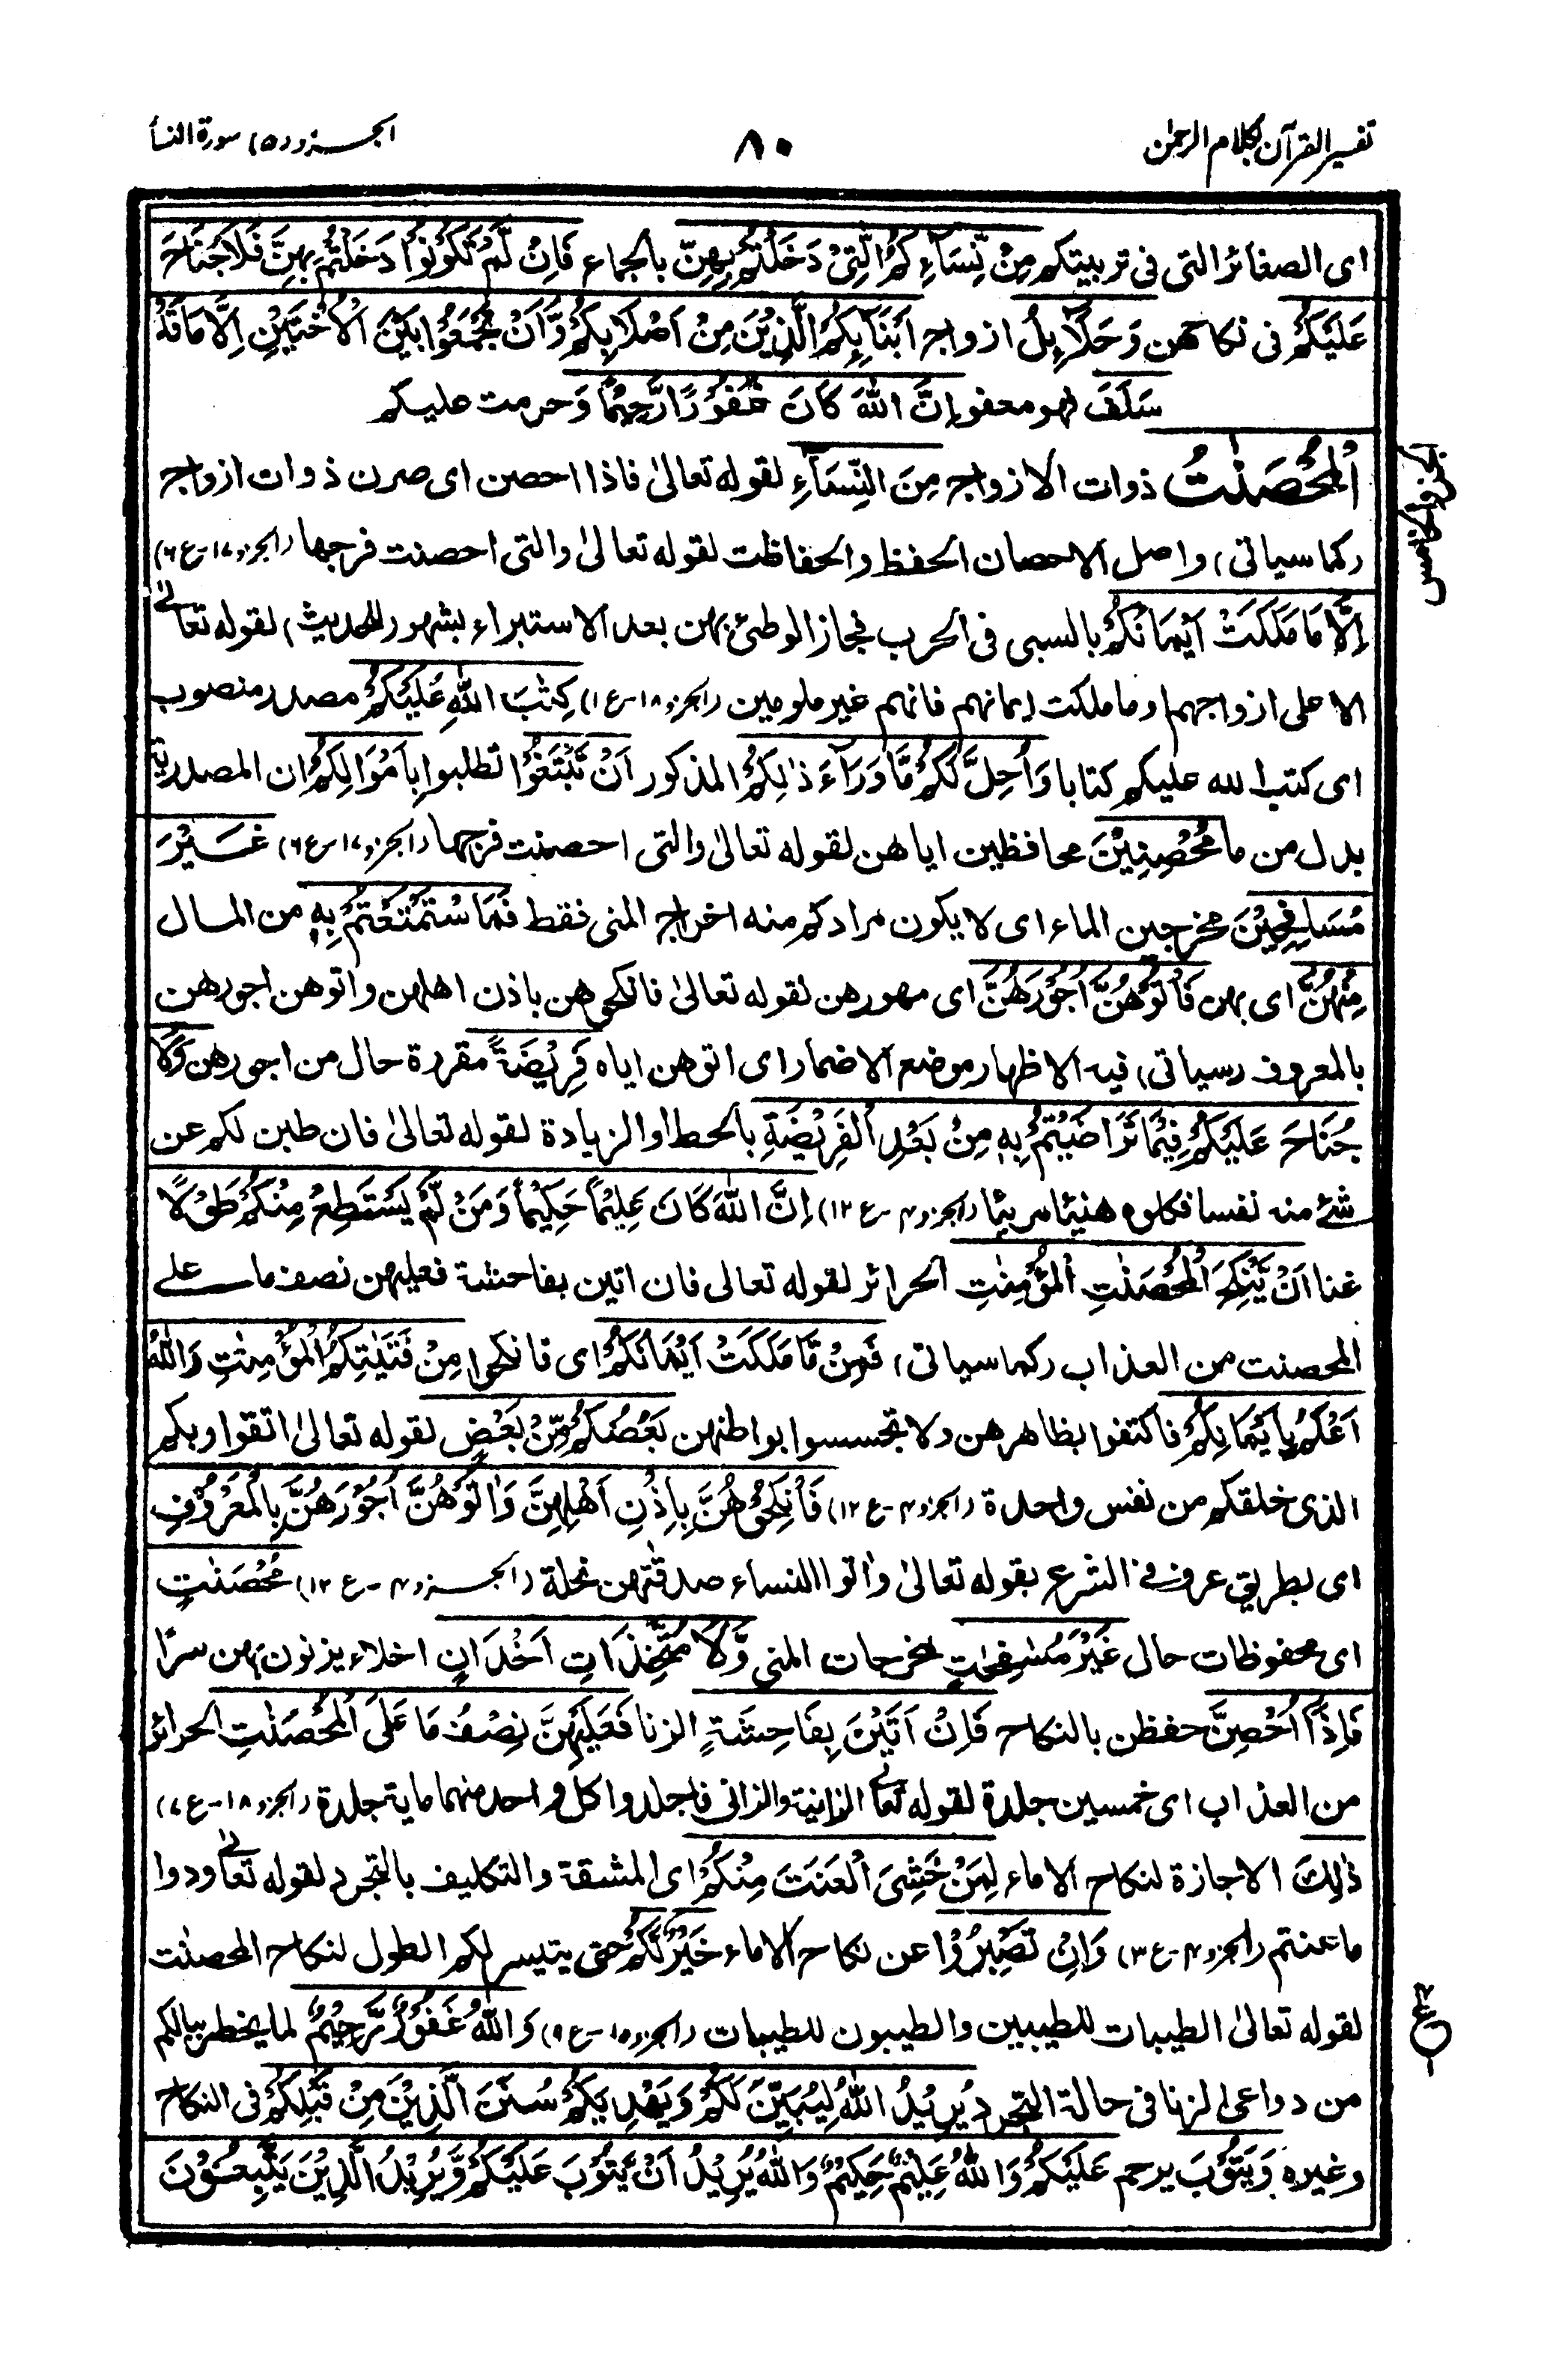 تفسير القرآن بكلام الرحمٰن
٨٠
الجزو (٥) سورة النسأ
اى الصغائر التى فى تربيتكم مِنْ نِّسَآءِكُمُ الّٰتِىْ دَخَلْتُمْ بِهِنَّ بالجماع فَاِنْ لَّمْ تَكُوْنُوْا دَخَلْتُمْ بِهِنَّ فَلَا جُنَاحَ
عَلَيْكُمْ فى نكاحهن وَحَلَآئِلُ ازواج اَبْنَآئِكُمُ الَّذِيْنَ مِنْ اَصْلَابِكُمْ وَاَنْ تَجْمَعُوْا بَيْنَ الْاُخْتَيْنِ اِلَّا مَا قَدْ
سَلَفَ فهو معفو اِنَّ اللّٰهَ كَانَ غَفُوْرًا رَّحِيْمًا وَحرمت عليكم
الْمُحْصَنٰتُ ذوات الازواج مِنَ النِّسَآءِ لقوله تعالىٰ فاذا احصن اى صرن ذوات ازواج
(كما سياتى) واصل الاحصان الحفظ والحفاظت لقوله تعالىٰ والتى احصنت فرجها (الجزو ١٧-ع٦)
اِلَّا مَا مَلَكَتْ اَيْمَانُكُمْ بالسبى فى الحرب فجاز الوطئ بهن بعد الاستبراء بشهر (للحديث) لقوله تعالىٰ
الا على ازواجهم او ما ملكت ايمانهم فانهم غير ملومين (الجزو ١٨-ع١) كِتٰبَ اللّٰهِ عَلَيْكُمْ مصدر منصوب
اى كتب الله عليكم كتابا وَاُحِلَّ لَكُمْ مَّا وَرَآءَ ذٰلِكُمْ المذكور اَنْ تَبْتَغُوْا تطلبوا بِاَمْوَالِكُمْ ان المصدرية
بدل من ما مُحْصِنِيْنَ محافظين اياهن لقوله تعالىٰ والتى احصنت فرجها (الجزو ١٧-ع٦) غَيْرَ
مُسَافِحِيْنَ مخرجين الماء اى لا يكون مرادكم منه اخراج المنى فقط فَمَا اسْتَمْتَعْتُمْ بِهٖ من المال
مِنْهُنَّ اى بهن فَاٰتُوْهُنَّ اُجُوْرَهُنَّ اى مهورهن لقوله تعالىٰ فانكحوهن باذن اهلهن واتوهن اجورهن
بالمعروف (سياتى) فيه الاظهار موضع الاضمار اى اتوهن اياه فَرِيْضَةً مقررة حال من اجورهن وَلَا
جُنَاحَ عَلَيْكُمْ فِيْمَا تَرَاضَيْتُمْ بِهٖ مِنْ بَعْدِ الْفَرِيْضَةِ بالحط او الزيادة لقوله تعالىٰ فان طبن لكم عن
شئ منه نفسا فكلوه هنيئا مريئا (الجزو ٤-ع١٢) اِنَّ اللّٰهَ كَانَ عَلِيْمًا حَكِيْمًا وَمَنْ لَّمْ يَسْتَطِعْ مِنْكُمْ طَوْلًا
غنا اَنْ يَّنْكِحَ الْمُحْصَنٰتِ الْمُؤْمِنٰتِ الحرائر لقوله تعالى فان اتين بفاحشة فعليهن نصف ما على
المحصنت من العذاب (كما سياتى) فَمِنْ مَّا مَلَكَتْ اَيْمَانُكُمْ اى فانكحوا مِنْ فَتَيٰتِكُمُ الْمُؤْمِنٰتِ وَاللّٰهُ
اَعْلَمُ بِاِيْمَانِكُمْ فاكتفوا بظاهرهن ولا تجسسوا بواطنهن بَعْضُكُمْ مِّنْ بَعْضٍ لقوله تعالىٰ اتقوا ربكم
الذى خلقكم من نفس واحدة (الجزو ٤-ع١٢) فَانْكِحُوْهُنَّ بِاِذْنِ اَهْلِهِنَّ وَاٰتُوْهُنَّ اُجُوْرَهُنَّ بِالْمَعْرُوْفِ
اى بطريق عرف فى الشرع بقوله تعالىٰ واٰتوا النساء صدقٰتهن نحلة (الجزو ٤-ع١٢) مُحْصَنٰتٍ
اى محفوظات حال غَيْرَ مُسٰفِحٰتٍ مخرجات المنى وَّلَا مُتَّخِذَاتِ اَخْدَانٍ اخلاء يزنون بهن سرًا
فَاِذَا اُحْصِنَّ حفظن بالنكاح فَاِنْ اَتَيْنَ بِفَاحِشَةٍ الزنا فَعَلَيْهِنَّ نِصْفُ مَا عَلَى الْمُحْصَنٰتِ الحرائر
من العذاب اى خمسين جلدة لقوله تعالىٰ الزانية والزانى فاجلدوا كل واحد منهما ماية جلدة (الجزو ١٨-ع٧)
ذٰلِكَ الاجازة لنكاح الاماء لِمَنْ خَشِىَ الْعَنَتَ مِنْكُمْ اى المشقة والتكليف بالتجرد لقوله تعالىٰ ودوا
ما عنتم (الجزو ٤-ع٣) وَاَنْ تَصْبِرُوْا عن نكاح الاماء خَيْرٌ لَّكُمْ حتى يتيسر لكم الطول لنكاح المحصنٰت
لقوله تعالىٰ الطيبات للطيبين والطيبون للطيبات (الجزو ١٥-ع٩) وَاللّٰهُ غَفُوْرٌ رَّحِيْمٌ لما يخطر ببالكم
من دواعى الزنا فى حالة التجرد يُرِيْدُ اللّٰهُ لِيُبَيِّنَ لَكُمْ وَيَهْدِيَكُمْ سُنَنَ الَّذِيْنَ مِنْ قَبْلِكُمْ فى النكاح
وغيره وَيَتُوْبَ يرحم عَلَيْكُمْ وَاللّٰهُ عَلِيْمٌ حَكِيْمٌ وَاللّٰهُ يُرِيْدُ اَنْ يَّتُوْبَ عَلَيْكُمْ وَيُرِيْدُ الَّذِيْنَ يَتَّبِعُوْنَ
الجزو الخامس